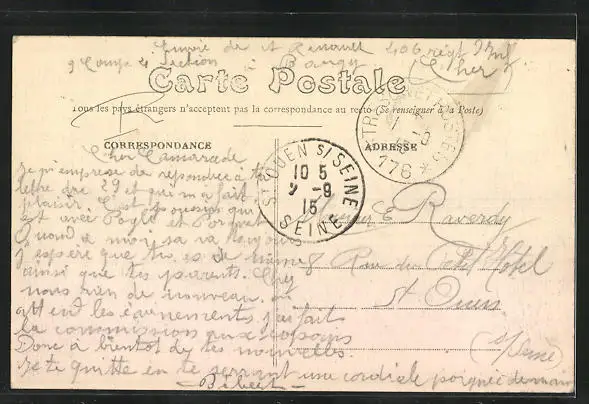 Envoi de A Renault 406 régt Inf
9 Comp 4 Section à Baugy (Cher)
Carte Postale
Tous les pays étrangers n'acceptent pas la correspondance au recto (Se renseigner à la Poste)
CORRESPONDANCE
ADRESSE
TRESOR ET POSTES
176
ST OUEN S/ SEINE
10 5
9 -9
15
SEINE
Cher Camarade
je m'empresse de repondre à ta
lettre du 29 et qui m'a fait
plaisir C'est
est avec
Quand à moi sa va toujours
J'espère que tu es de même
ainsi que tes parents. Chez
nous rien de nouveau, on
attend les évenements j'ai fait
la commission aux copains
Donc à bientôt de tes nouvelles
Je te quitte en te serrant une cordiale poignée de main
Bébert
E Raverdy
8 Rue du Petit Hotel
St Ouen
(Seine)